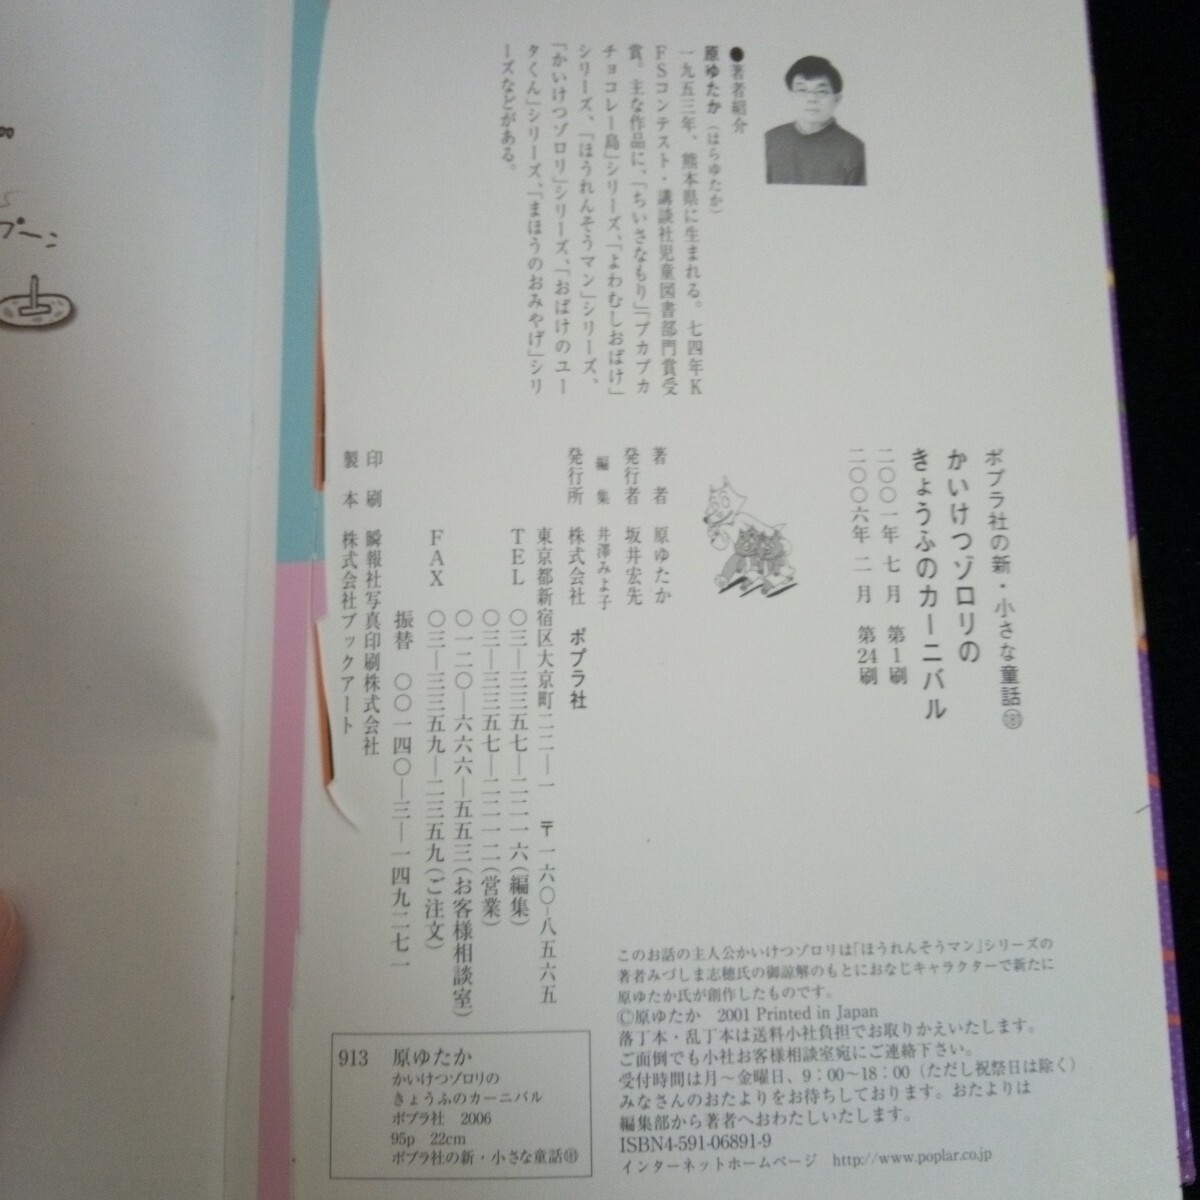 プーン
●著者紹介
原ゆたか(はらゆたか)
一九五三年、熊本県に生まれる。七四年K
FSコンテスト・講談社児童図書部門賞受
賞。主な作品に、「ちいさなもり」「プカプカ
チョコレー島」シリーズ、「よわむしおばけ」
シリーズ、「ほうれんそうマン」シリーズ、
「かいけつゾロリ」シリーズ、「おばけのユー
タくん」シリーズ、「まほうのおみやげ」シリ
ーズなどがある。
ポプラ社の新・小さな童話
かいけつゾロリの
きょうふのカーニバル
二〇〇一年 七月 第1刷
二〇〇六年 二月 第24刷
著者 原ゆたか
発行者 坂井宏先
編集 井澤みよ子
発行所 株式会社 ポプラ社
東京都新宿区大京町二二―一 〒一六〇―八五六五
TEL 〇三―三三五七―二二一六(編集)
〇三―三三五七―二二一二(営業)
〇一二〇―六六六―五五三(お客様相談室)
FAX 〇三―三三五九―二三五九(ご注文)
振替 〇〇一四〇―三―一四九二七一
印刷 瞬報社写真印刷株式会社
製本 株式会社ブックアート
このお話の主人公かいけつゾロリは「ほうれんそうマン」シリーズの
著者みづしま志穂氏の御諒解のもとにおなじキャラクターで新たに
原ゆたか氏が創作したものです。
©原ゆたか 2001 Printed in Japan
落丁本・乱丁本は送料小社負担でお取りかえいたします。
ご面倒でも小社お客様相談室宛にご連絡下さい。
受付時間は月～金曜日、9：00～18：00(ただし祝祭日は除く)
みなさんのおたよりをお待ちしております。おたよりは
編集部から著者へおわたしいたします。
ISBN4-591-06891-9
インターネットホームページ http://www.poplar.co.jp
913 原ゆたか
かいけつゾロリの
きょうふのカーニバル
ポプラ社 2006
95p 22cm
ポプラ社の新・小さな童話